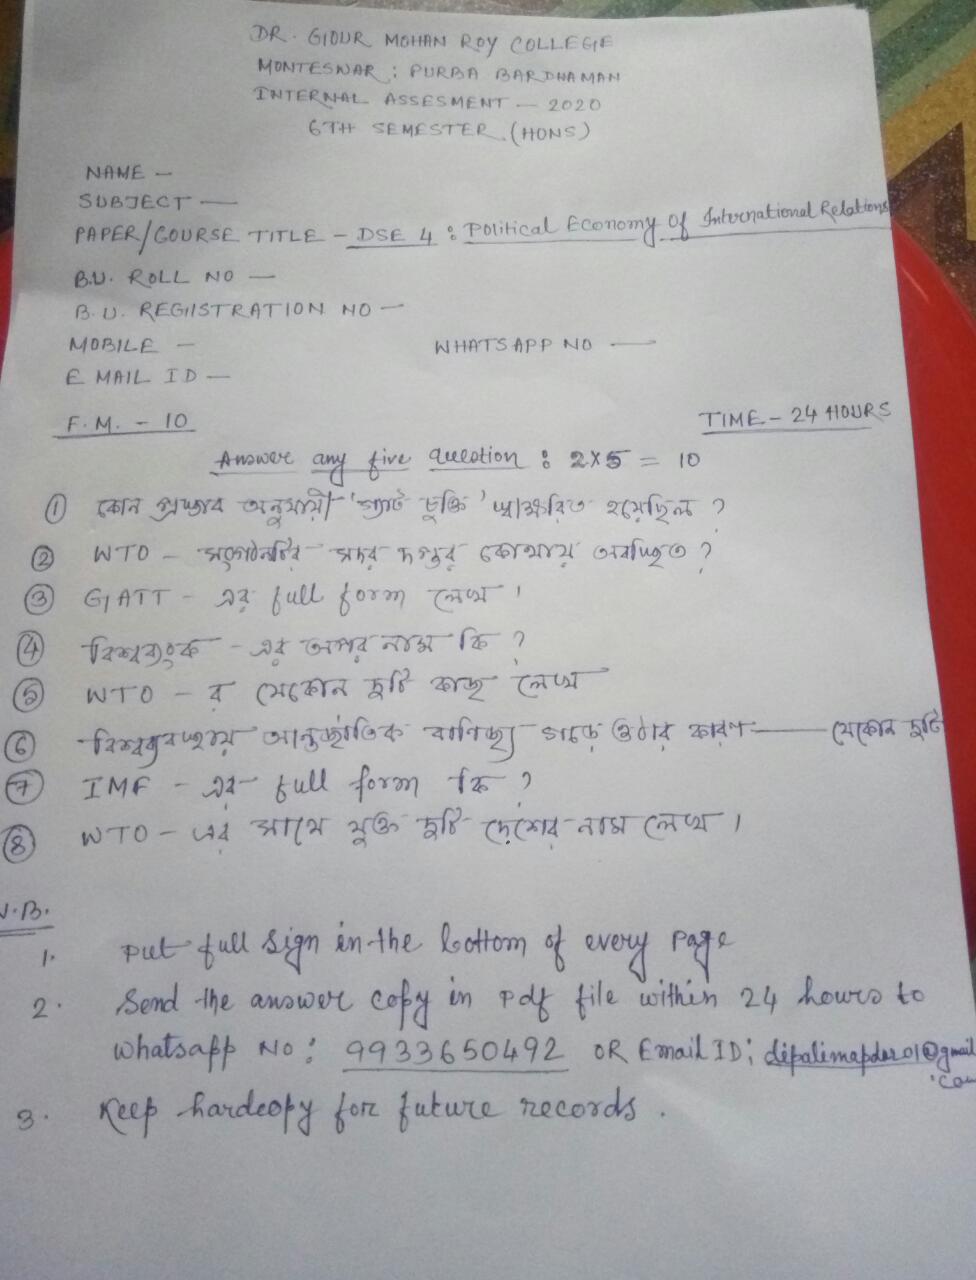 DR. GOUR MOHAN ROY COLLEGE
MONTESWAR : PURBA BARDHAMAN
INTERNAL ASSESMENT — 2020
6TH SEMESTER (HONS)
NAME —
SUBJECT —
PAPER/COURSE TITLE — DSE 4 : Political Economy Of International Relations
B.U. ROLL NO —
B.U. REGISTRATION NO —
MOBILE — WHATSAPP NO —
E MAIL ID —
F.M. — 10 TIME — 24 HOURS
Answer any five question : 2×5 = 10
① কোন প্রস্তাব অনুযায়ী 'গ্যাট চুক্তি' স্বাক্ষরিত হয়েছিল ?
② WTO — সংগঠনটির সদর দপ্তর কোথায় অবস্থিত ?
③ GATT - এর full form লেখ ।
④ বিশ্বব্যাংক - এর অপর নাম কি ?
⑤ WTO — র যেকোন দুটি কাজ লেখ
⑥ বিশ্বব্যবস্থায় আন্তর্জাতিক বাণিজ্য গড়ে ওঠার কারণ — যেকোন দুটি
⑦ IMF - এর full form কি ?
⑧ WTO — এর সাথে যুক্ত দুটি দেশের নাম লেখ ।
N.B.
1. Put full sign in the bottom of every page
2. Send the answer copy in pdf file within 24 hours to
whatsapp No : 9933650492 OR Email ID : dipalimapdar01@gmail
.com
3. Keep hardcopy for future records .